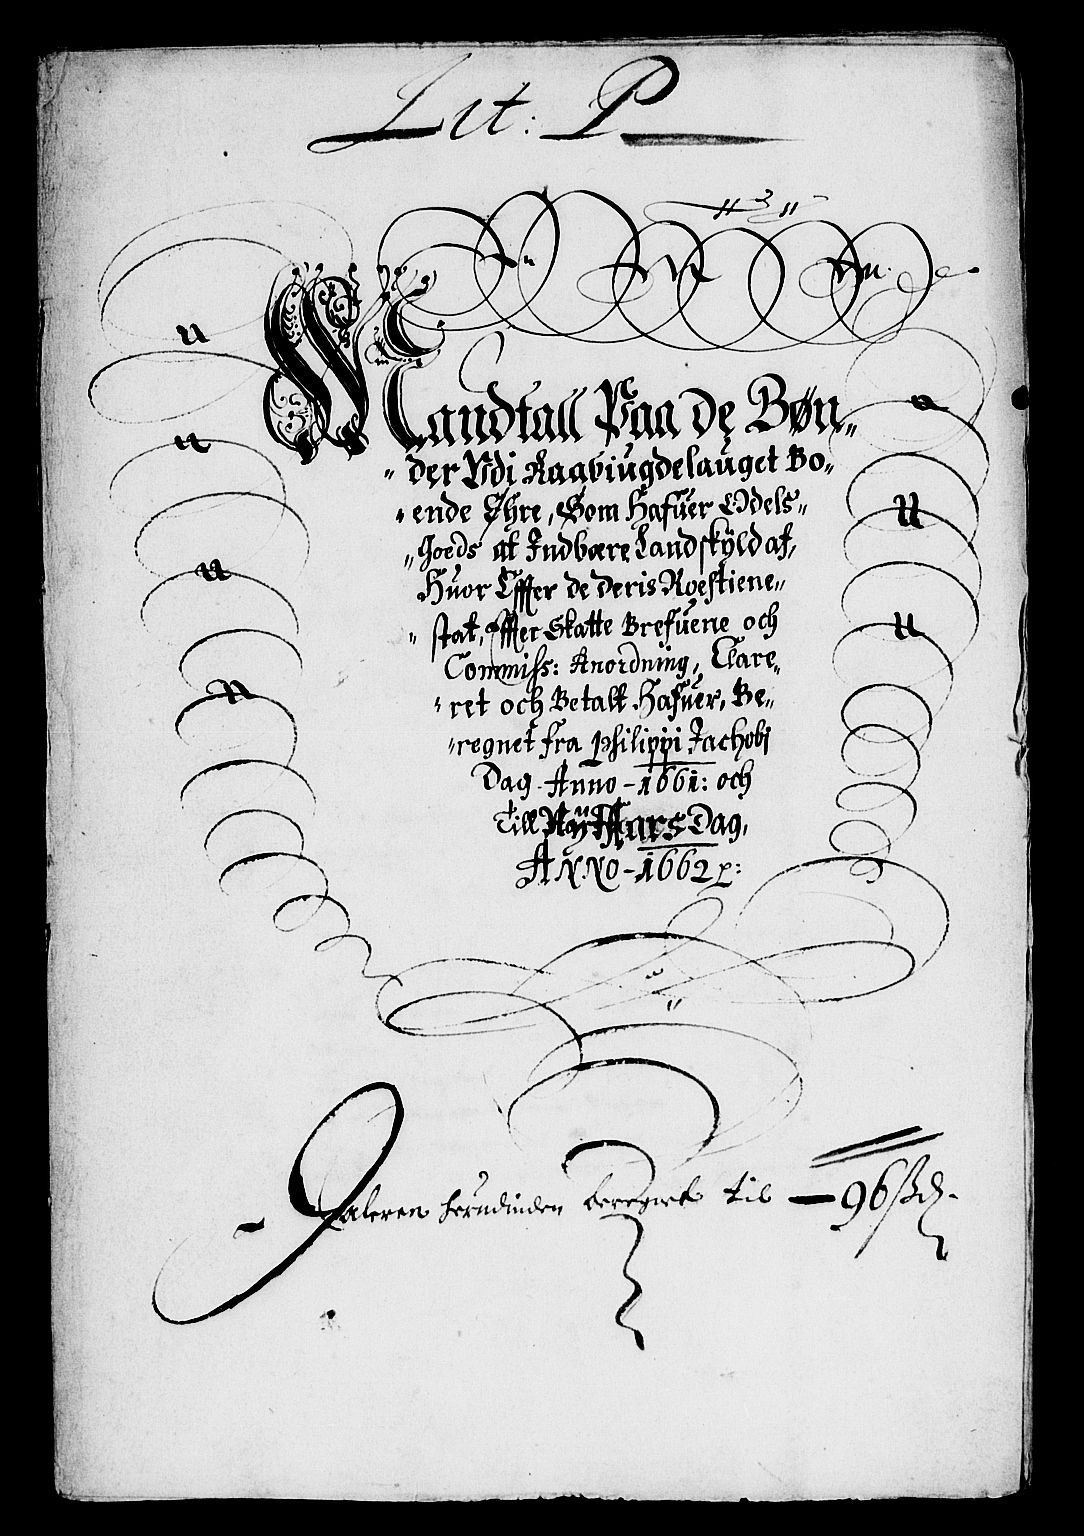 Lit: P
Mandtall Paa de Bøn„
„ der Vdi Aagbiugdelauget Bo„
„ ende Ehre, Som Hafuer Odels„
„ Goeds at Indbære Landskÿld af,
Huor Effter de deris Roestiene„
„ stat, Effter Skatte Brefuene och
Commiss: Anordning, Clare„
„ ret och Betalt Hafuer, Be„
„ regnet fra Philippi Jachobj
Dag Anno - 1661: och
Till Nÿtt Aars Dag,
ANNO - 1662 p:
daleren herudinden beregnet til — 96 ß d.